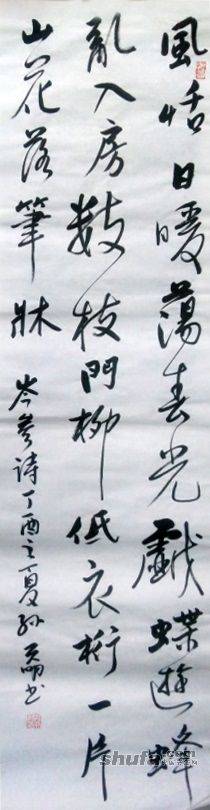 風恬日暖蕩春光戲蝶遊蜂
亂入房數枝門柳低衣桁一片
山花落筆牀
岑参诗丁酉之夏孙
书
shufa